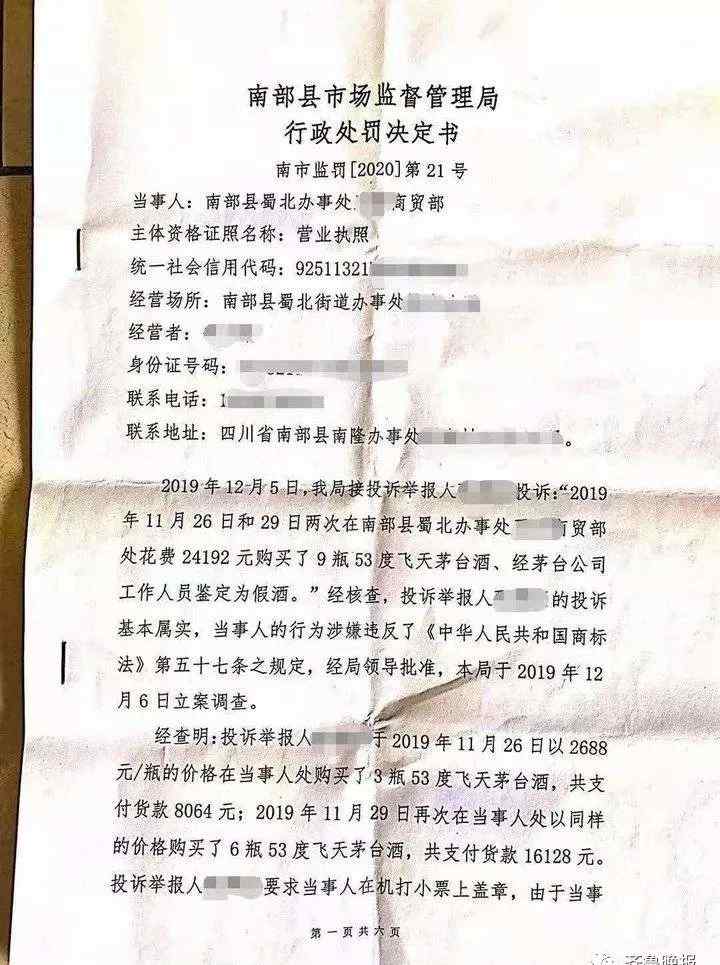 南部县市场监督管理局
行政处罚决定书
南市监罚[2020]第21号
当事人：南部县蜀北办事处 商贸部
主体资格证照名称：营业执照
统一社会信用代码：92511321
经营场所：南部县蜀北街道办事处
经营者：
身份证号码：
联系电话：1
联系地址：四川省南部县南隆办事处 。
2019年12月5日，我局接投诉举报人 投诉：“2019
年11月26日和29日两次在南部县蜀北办事处 商贸部
处花费24192元购买了9瓶53度飞天茅台酒、经茅台公司
工作人员鉴定为假酒。”经核查，投诉举报人 的投诉
基本属实，当事人的行为涉嫌违反了《中华人民共和国商标
法》第五十七条之规定，经局领导批准，本局于2019年12
月6日立案调查。
经查明：投诉举报人 于2019年11月26日以2688
元/瓶的价格在当事人处购买了3瓶53度飞天茅台酒，共支
付货款8064元；2019年11月29日再次在当事人处以同样
的价格购买了6瓶53度飞天茅台酒，共支付货款16128元。
投诉举报人 要求当事人在机打小票上盖章，由于当事
第一页共六页
齐鲁晚报